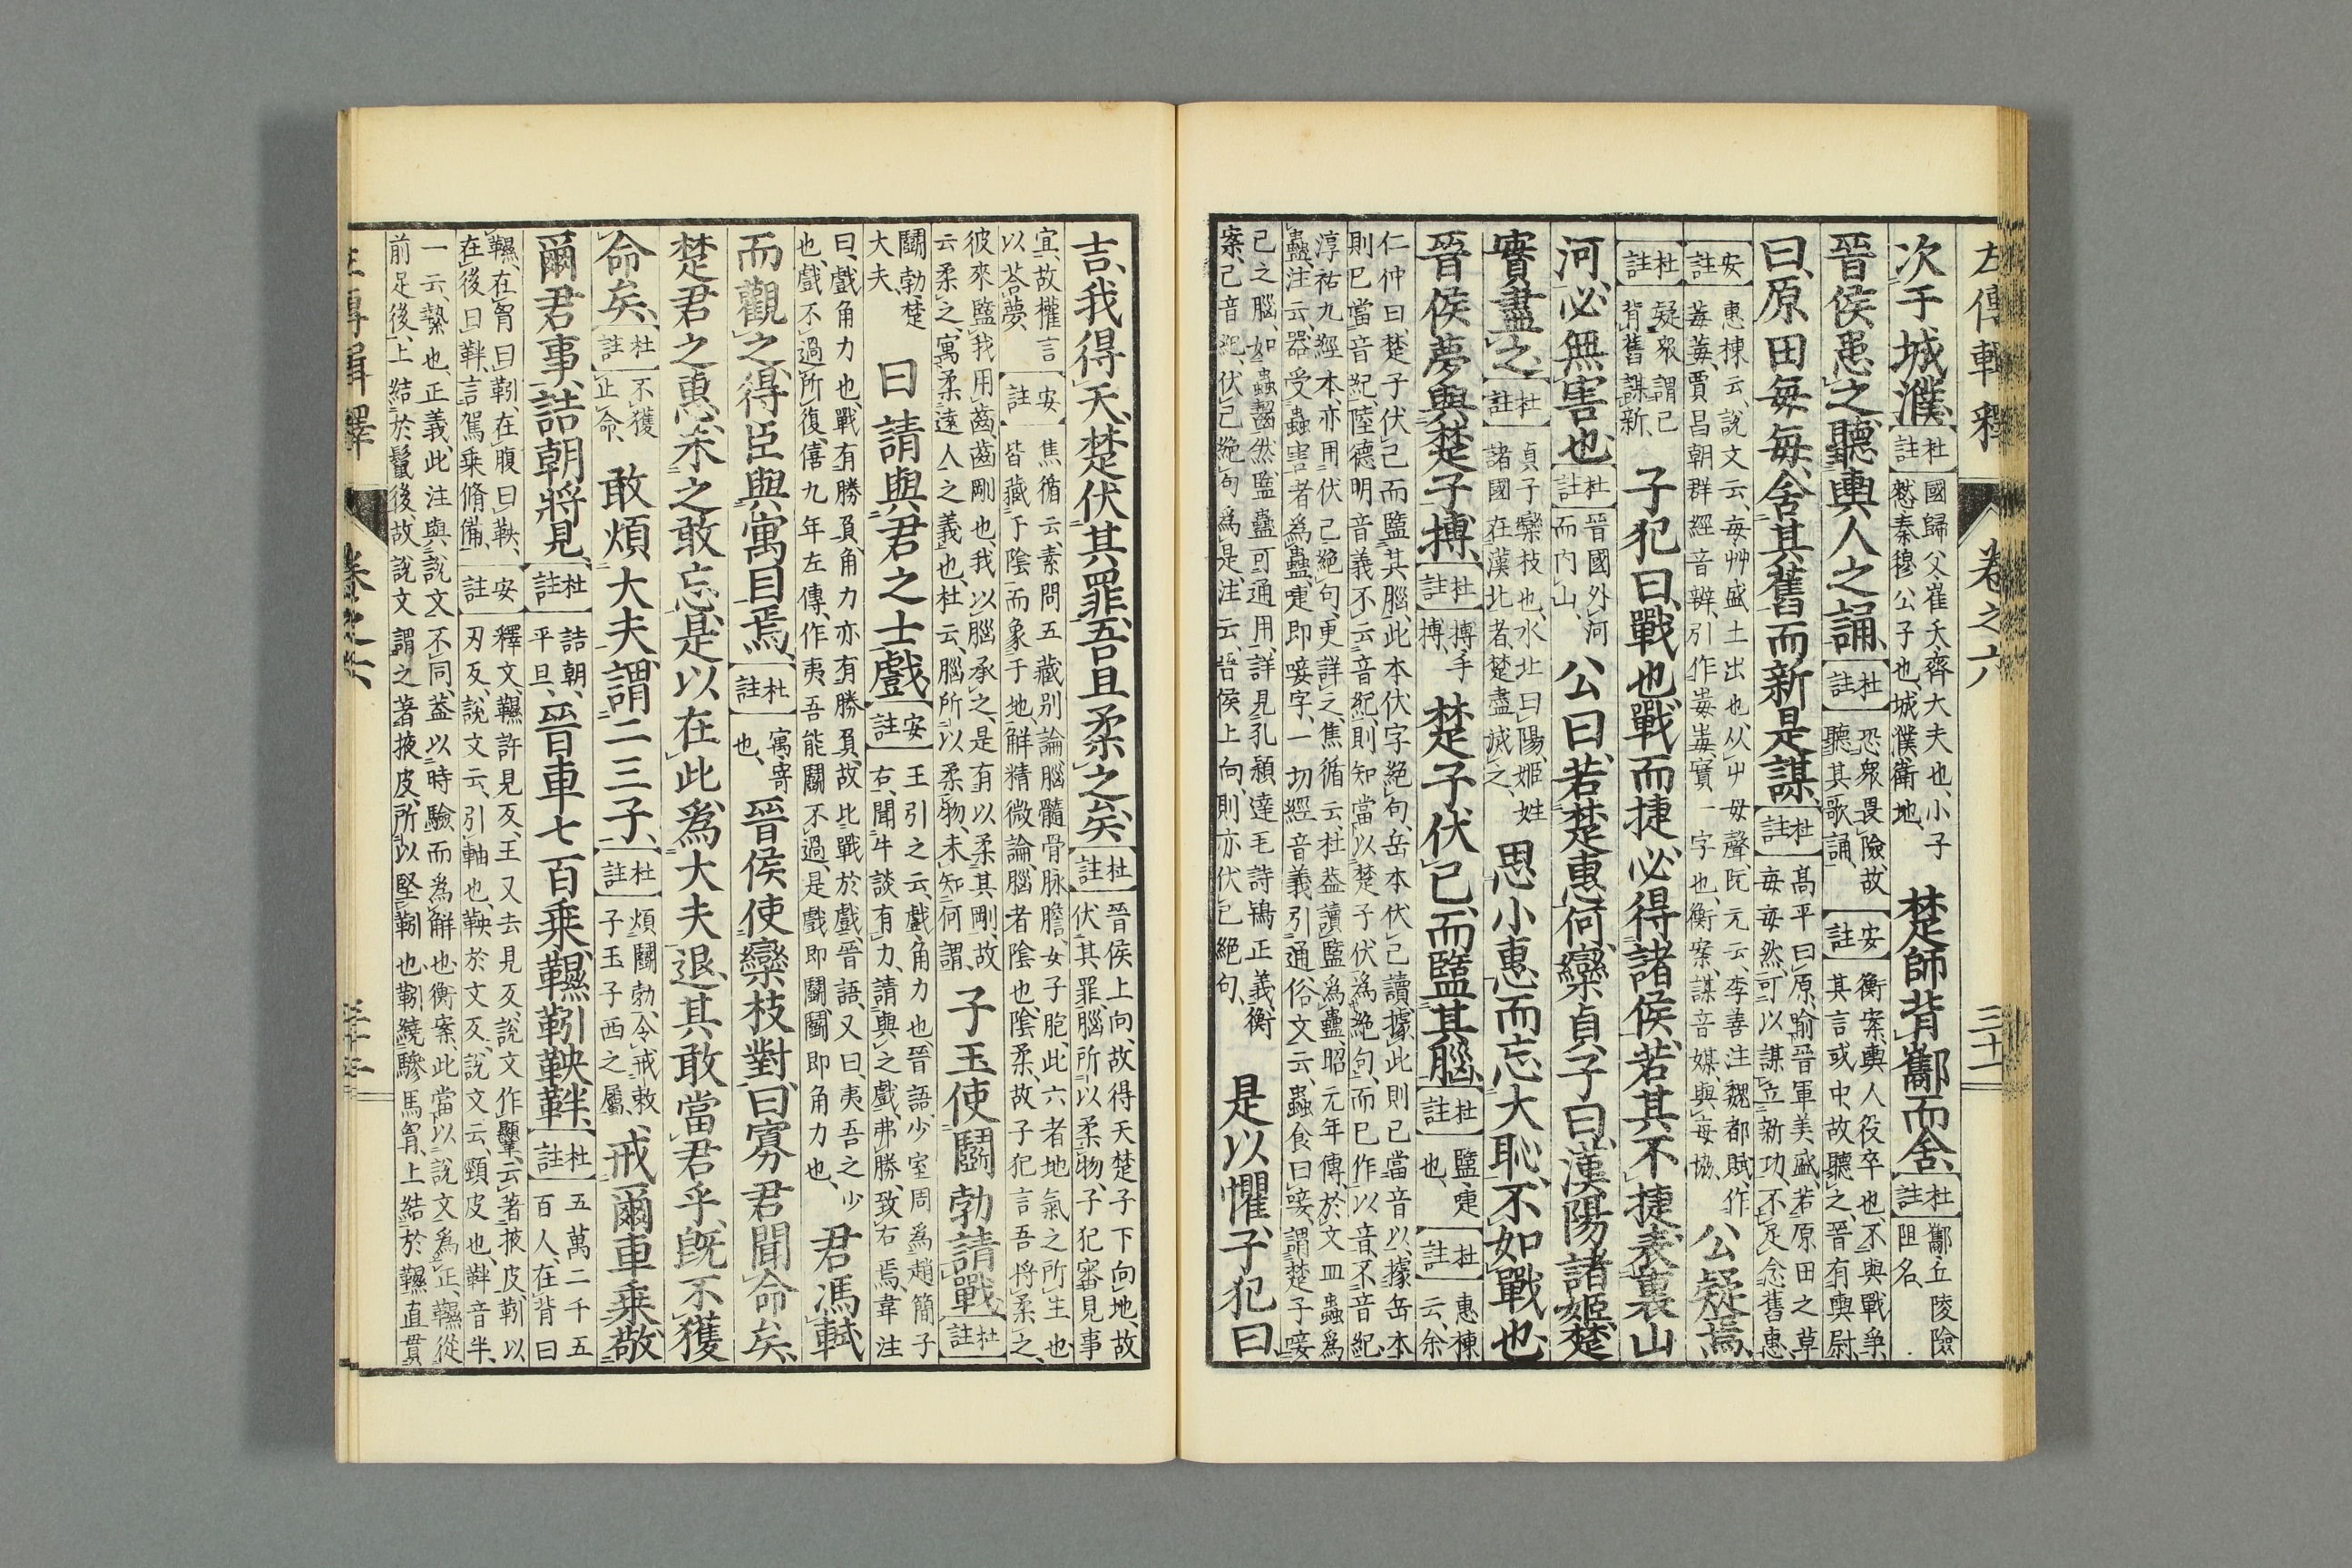 左傳輯釋 卷之六 三十一
次于城濮、杜註國歸父、崔夭、齊大夫也、小子憖、秦穆公子也、城濮、衛地、楚師背酅而舍、杜註酅、丘陵險阻名、
晉侯患之、聽輿人之誦、杜註恐衆畏險、故聽其歌誦、安註衡案、輿人役卒也、不與戰爭、其言或中、故聽之、晉有輿尉、
曰、原田每每、舍其舊而新是謀、杜註高平曰原、喻晉軍美盛、若原田之草每每然、可以謀立新功、不足念舊惠、
安註惠棟云、說文云、每、艸盛土出也、从屮母聲、阮元云、李善注魏都賦、作莓莓、賈昌朝群經音辨、引作莓莓、實一字也、衡案、謀音媒、與每協、公疑焉、
杜註疑衆謂己背舊謀新、子犯曰、戰也、戰而捷、必得諸侯、若其不捷、表裏山
河、必無害也、杜註晉國外河而内山、公曰、若楚惠何、欒貞子曰、漢陽諸姬、楚
實盡之、杜註貞子、欒枝也、水北曰陽、姬姓諸國在漢北者、楚盡滅之、思小惠而忘大恥、不如戰也、
晉侯夢與楚子搏、杜註搏、手搏、楚子伏己、而盬其腦、杜註盬、啑也、杜註惠棟云、余
仁仲曰、楚子伏己而盬其腦、此本伏字絕句、岳本伏己讀、據此則己當音以、據岳本則己當音紀、陸德明音義不云音紀、則知當以楚子伏爲絕句、而巳作以音、不音紀、
淳祐九經本、亦用伏己絕句、更詳之、焦循云、杜葢讀盬爲蠱、昭元年傳、於文皿蟲爲蠱、注云、器受蟲害者爲蠱、啑即唼字、一切經音義引通俗文云、蟲食曰唼、謂楚子唼
己之腦、如蟲齧然、盬蠱可通用、詳見孔穎達毛詩鴇正義、衡案、己音紀、伏己絕句爲是、注云、晉侯上向、則亦伏己絕句、是以懼、子犯曰
吉、我得天、楚伏其罪、吾且柔之矣、杜註晉侯上向、故得天、楚子下向地、故伏其罪、腦所以柔物、子犯審見事
宜、故權言以荅夢、安註焦循云、素問五藏别論、腦髓骨脉膽、女子胞、此六者地氣之所生也、皆藏于陰、而象于地、解精微論腦者陰也、陰柔、故子犯言吾將柔之、
彼來盬我用齒、齒剛也、我以腦承之、是有以柔其剛、故云柔之、寓柔遠人之義也、杜云、腦所以柔物、未知何謂、子玉使鬭勃請戰、杜註
鬭勃、楚大夫、曰、請與君之士戲、安註王引之云、戲、角力也、晉語、少室周爲趙簡子右、聞牛談有力、請與之戲、弗勝、致右焉、韋注
曰、戲角力也、戰有勝負、角力亦有勝負、故比戰於戲、晉語、又曰、夷吾之少也、戲不過所復、僖九年左傳、作夷吾能鬭不過、是戲即鬭、鬭即角力也、君馮軾
而觀之、得臣與寓目焉、杜註寓、寄也、晉侯使欒枝對曰、寡君聞命矣、
楚君之惠、未之敢忘、是以在此、爲大夫退、其敢當君乎、既不獲
命矣、杜註不獲止命、敢煩大夫、謂二三子、杜註煩鬭勃、令戒敕子玉子西之屬、戒爾車乘、敬
爾君事、詰朝將見、杜註詰朝、平旦、晉車七百乘、韅靷鞅靽、杜註五萬二千五百人、在背曰
韅、在胷曰靷、在腹曰鞅、在後曰靽、言駕乘脩備、安註釋文、韅許見反、王又去見反、說文作㬎革、云、著掖皮、靷以刃反、說文云、引軸也、鞅於文反、說文云、頸皮也、靽音半、
一云、縶也、正義、此注與說文不同、葢以時驗而爲解也、衡案、此當以說文爲正、韅從前足後、上結於鬣後、故說文謂之著掖皮、所以堅靷也、靷繞驂馬胷、上結於韅、直貫
左傳輯釋 卷之六